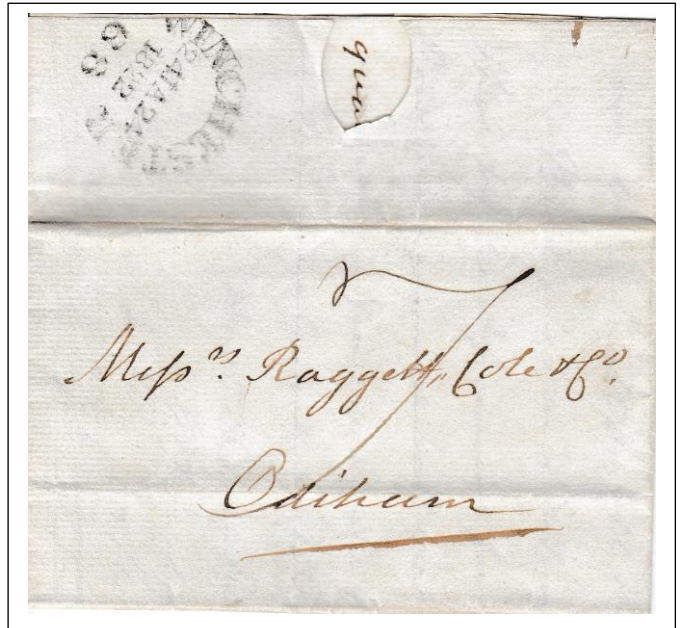 WINCHESTER
24MA24
1822
66
qua
7
Mess.rs Raggett, Cole & Co.
Odiham